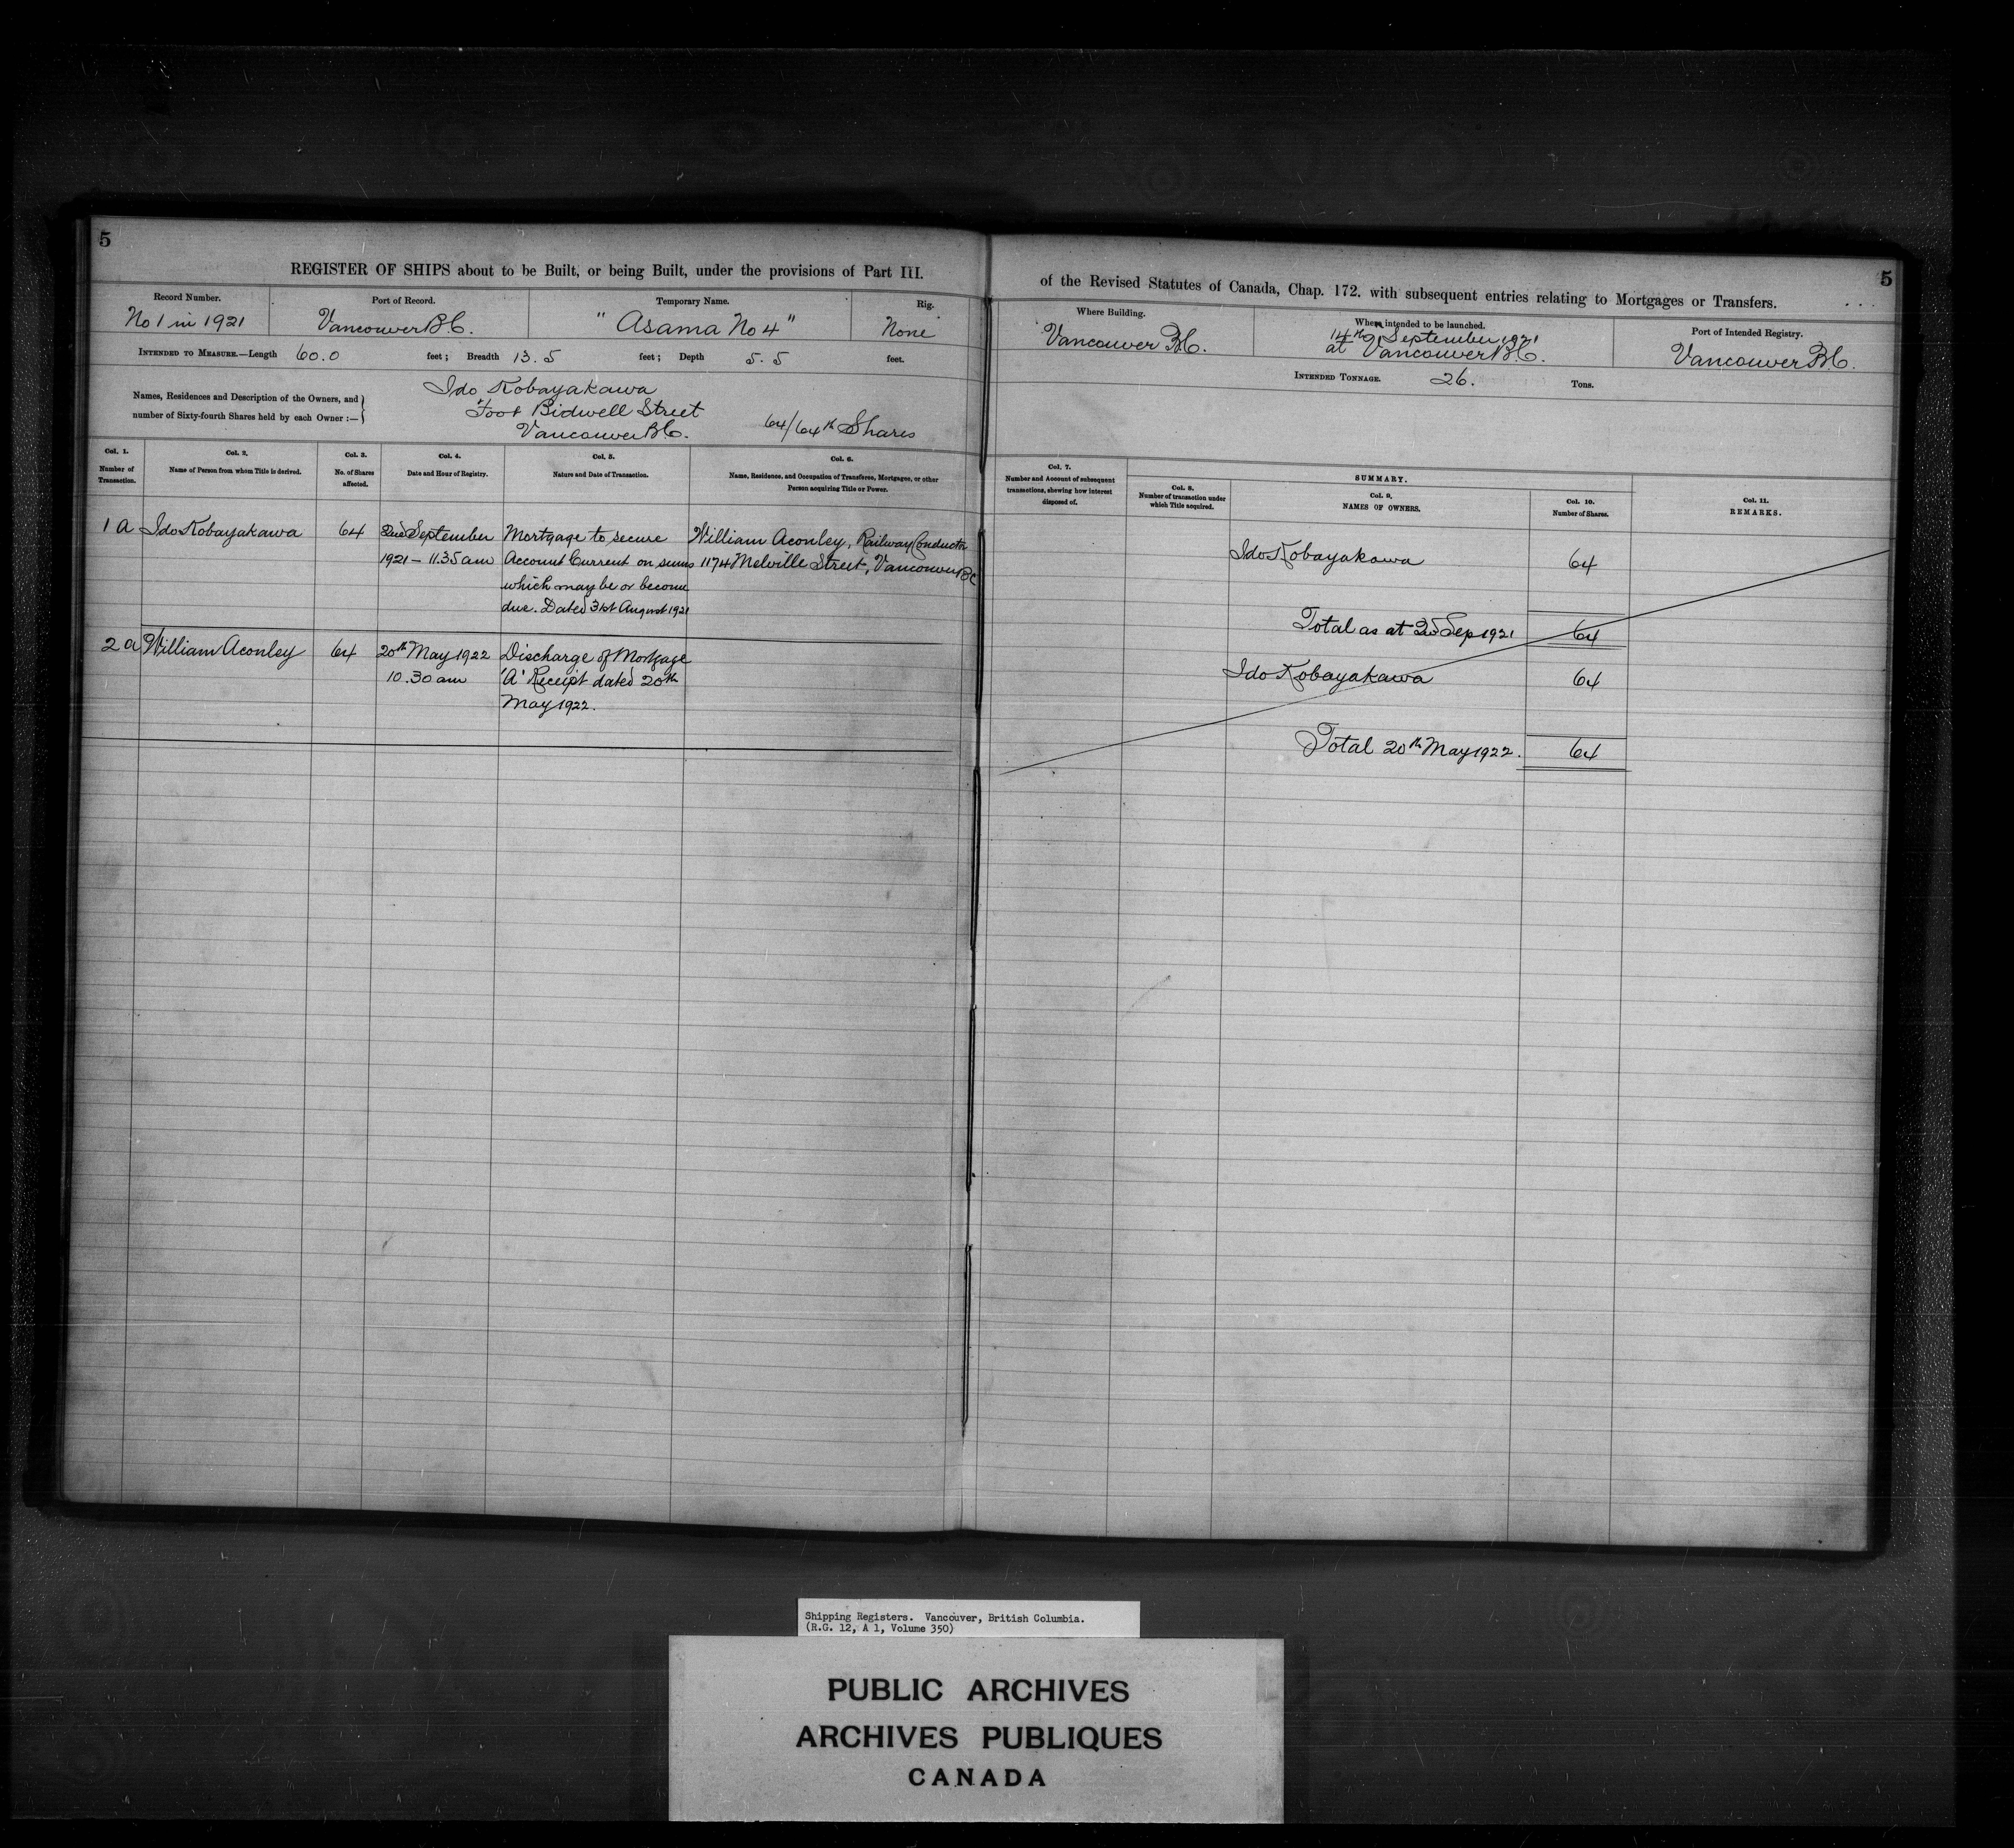 5
REGISTER OF SHIPS about to be Built, or being Built, under the provisions of Part III.
Record Number.
No 1 in 1921
Port of Record.
Vancouver BC.
Temporary Name.
"Asama No 4"
Rig.
None
INTENDED TO MEASURE.—Length 60.0 feet; Breadth 13.5 feet; Depth 5.5 feet.
Names, Residences and Description of the Owners, and
number of Sixty-fourth Shares held by each Owner :—
Ido Kobayakawa
Foot Bidwell Street
Vancouver BC. 64/64th Shares
Col. 1.
Number of
Transaction.
Col. 2.
Name of Person from whom Title is derived.
Col. 3.
No. of Shares
affected.
Col. 4.
Date and Hour of Registry.
Col. 5.
Nature and Date of Transaction.
Col. 6.
Name, Residence, and Occupation of Transferee, Mortgagee, or other
Person acquiring Title or Power.
1 A Ido Kobayakawa 64 2nd September Mortgage to secure William Aconley, Railway Conductor
1921 – 11.35 am Account Current on sums 1174 Melville Street, Vancouver BC
which may be or become
due. Dated 31st August 1921
2 a William Aconley 64 20th May 1922 Discharge of Mortgage
10.30 am 'A' Receipt dated 20th
May 1922.
5
of the Revised Statutes of Canada, Chap. 172. with subsequent entries relating to Mortgages or Transfers.
Where Building.
Vancouver BC.
When intended to be launched.
14th September 1921
at Vancouver BC.
Port of Intended Registry.
Vancouver BC.
INTENDED TONNAGE. 26. Tons.
Col. 7.
Number and Account of subsequent
transactions, shewing how interest
disposed of.
SUMMARY.
Col. 8.
Number of transaction under
which Title acquired.
Col. 9.
NAMES OF OWNERS.
Col. 10.
Number of Shares.
Col. 11.
REMARKS.
Ido Kobayakawa 64
Total as at 2nd Sep 1921 64
Ido Kobayakawa 64
Total 20th May 1922. 64
Shipping Registers. Vancouver, British Columbia.
(R.G. 12, A 1, Volume 350)
PUBLIC ARCHIVES
ARCHIVES PUBLIQUES
CANADA